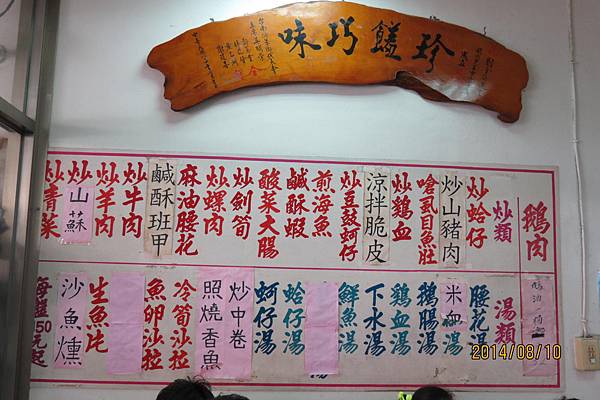 珍饈巧味
鵝肉
炒類
炒蛤仔
炒山豬肉
嗆虱目魚肚
炒雞血
涼拌脆皮
炒豆鼓蚵仔
煎海魚
鹹酥蝦
酸菜大腸
炒劍筍
炒螺肉
麻油腰花
鹹酥班甲
炒牛肉
炒羊肉
炒山蘇
炒青菜
湯類
腰花湯
米血湯
鵝腸湯
雞血湯
下水湯
鮮魚湯
蛤仔湯
蚵仔湯
炒中卷
照燒香魚
冷筍沙拉
魚卵沙拉
生魚片
沙魚燻
每盤50元起
2014/08/10